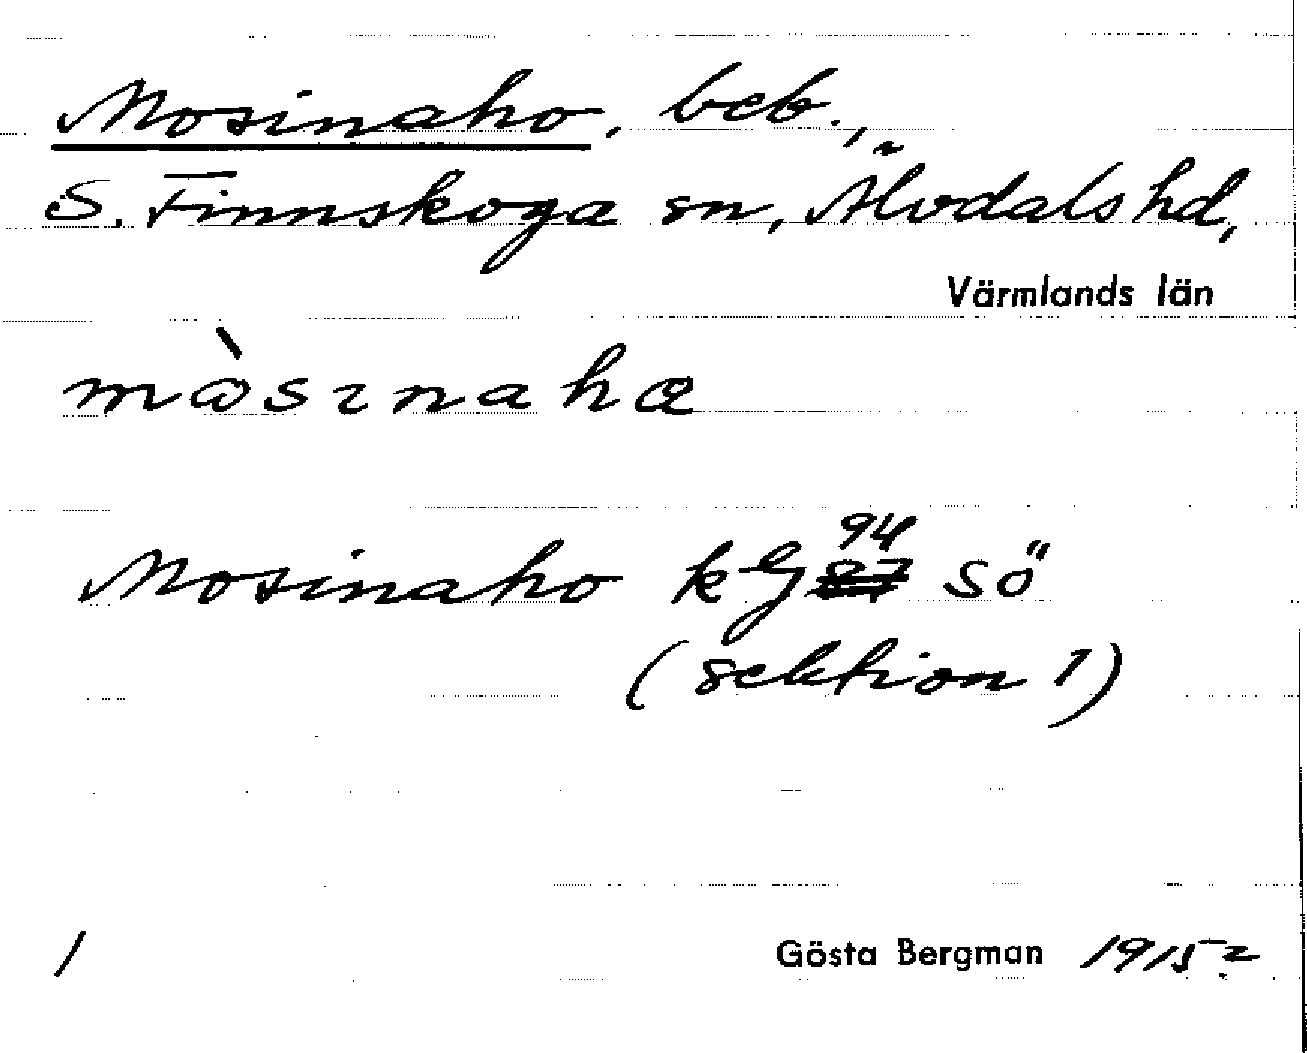 Mosinaho, beb.,
S. Finnskoga sn, Älvdals hd,
Värmlands län
mòsɩnaha
Mosinaho kg 94 sö
(sektion 1)
1 Gösta Bergman 1915?